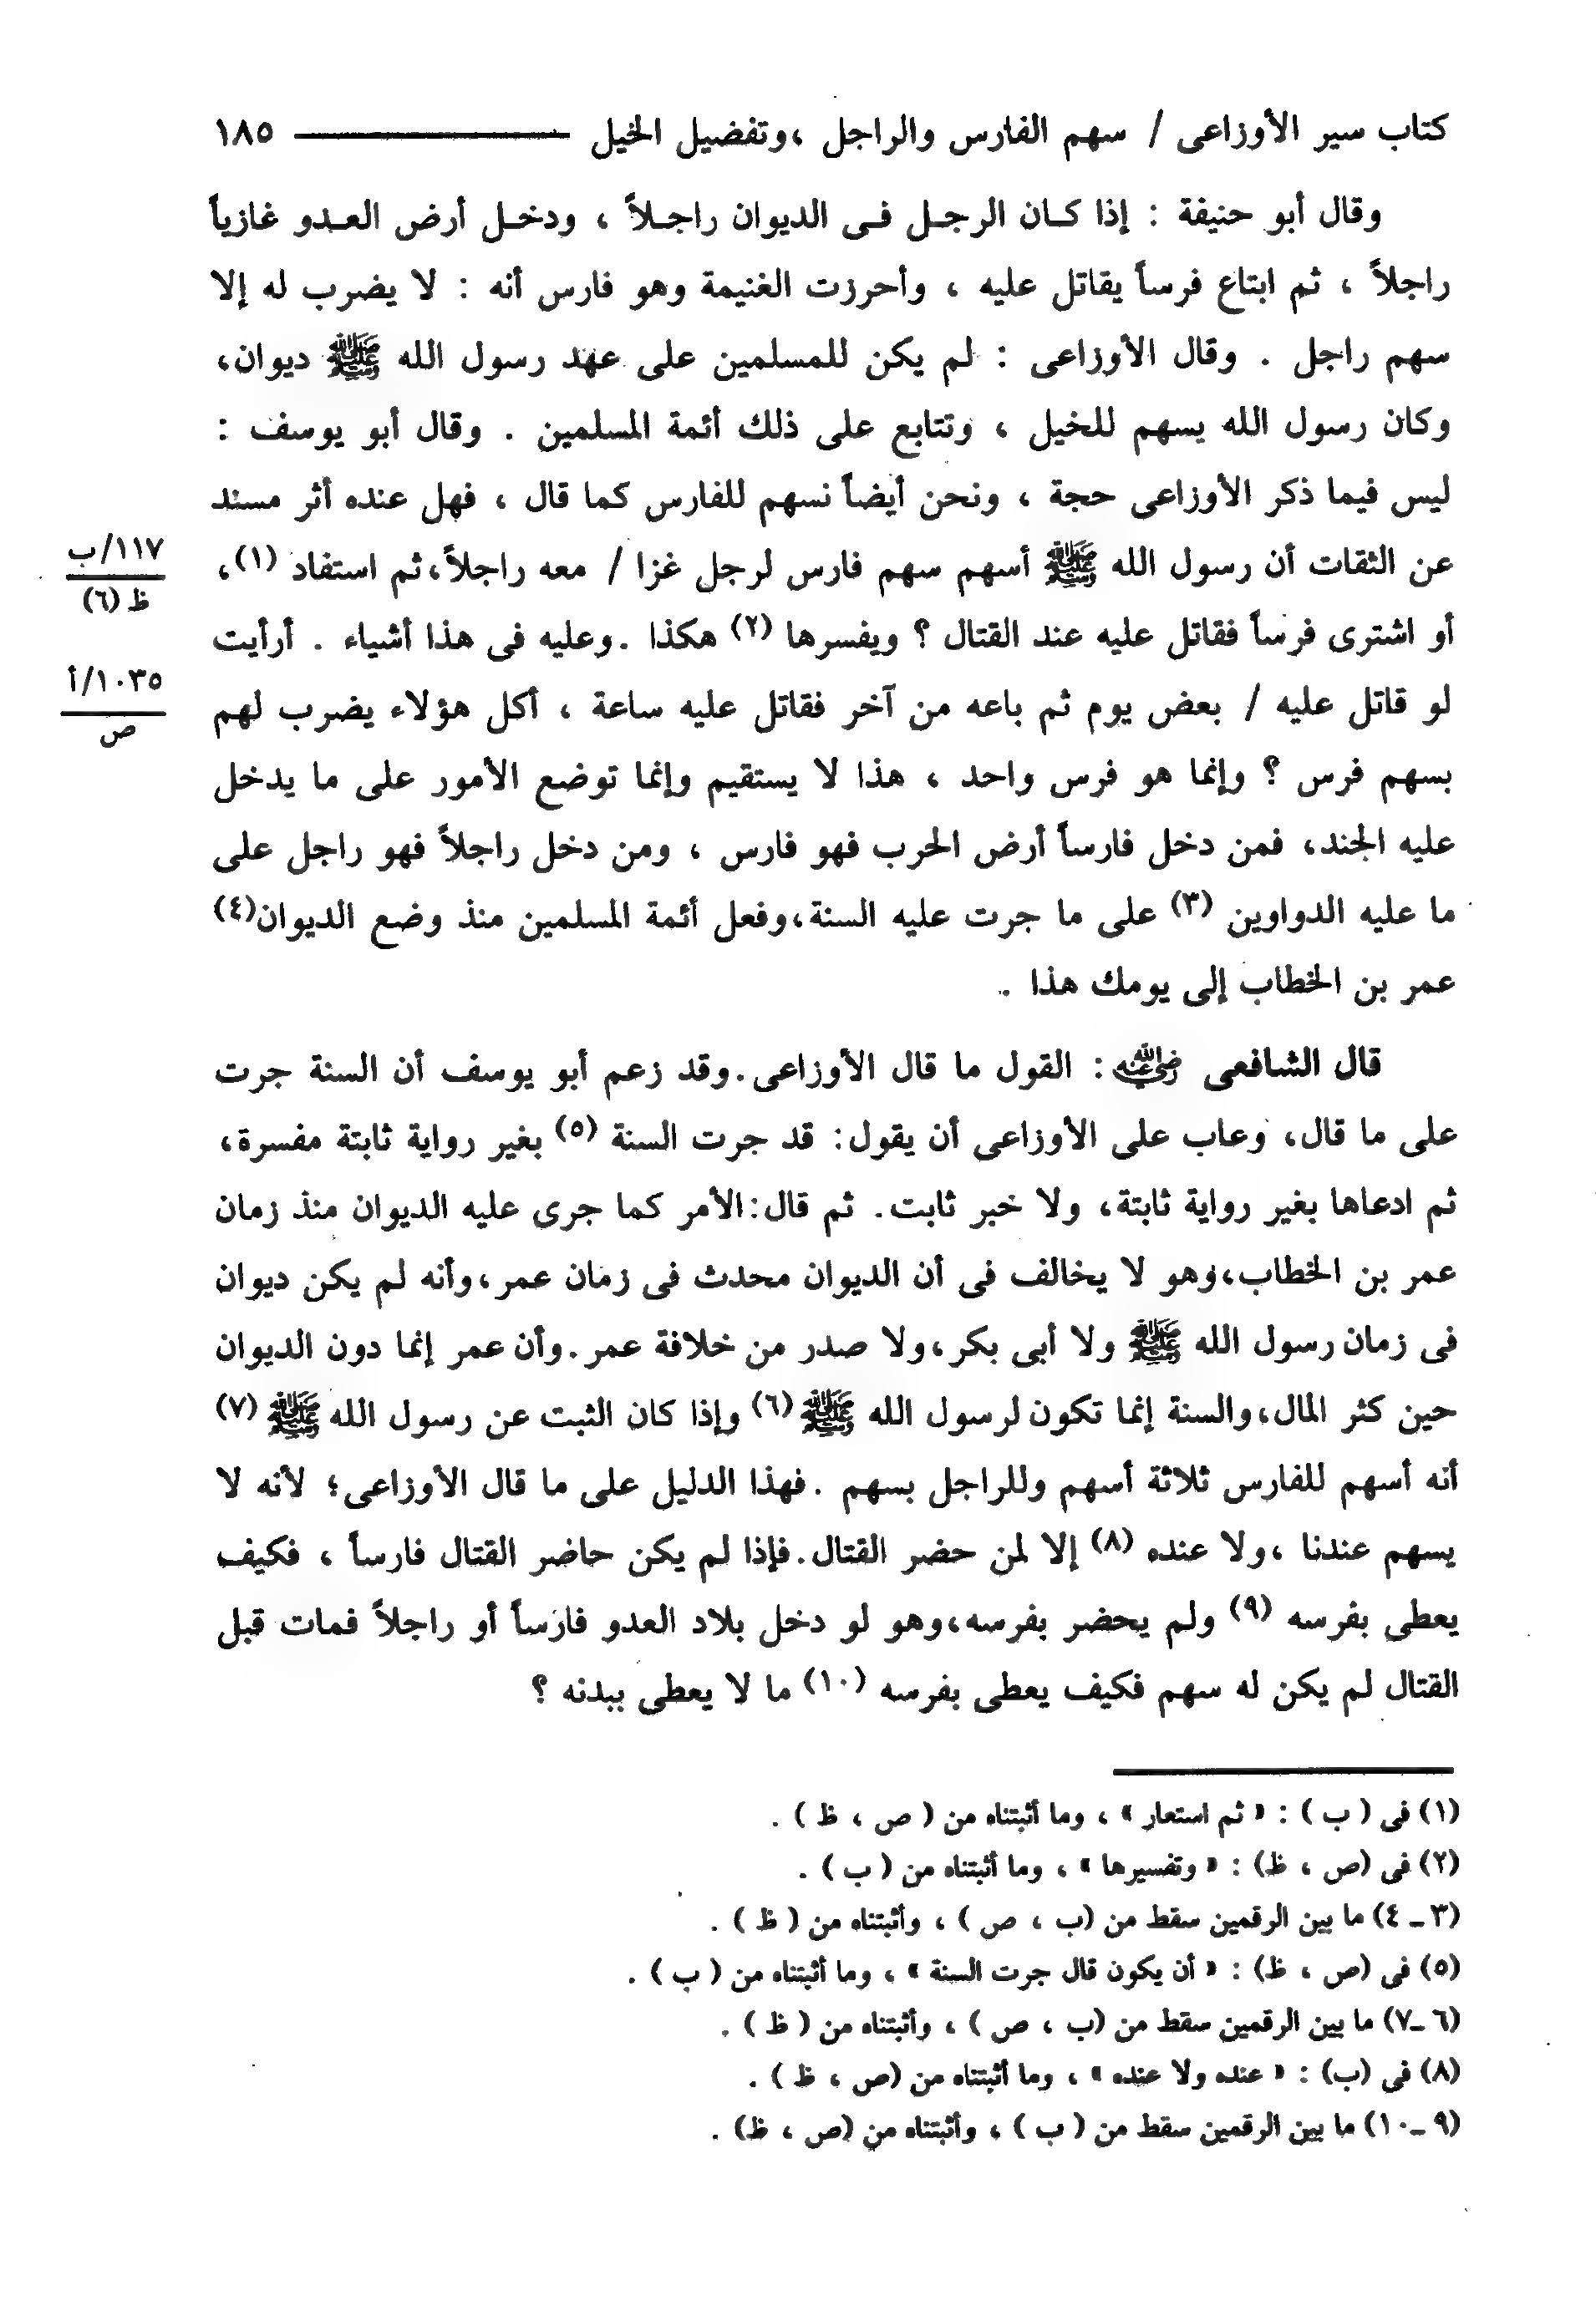 كتاب سير الأوزاعى / سهم الفارس والراجل ،وتفضيل الخيل ١٨٥
وقال أبو حنيفة : إذا كان الرجل فى الديوان راجلاً ، ودخل أرض العدو غازياً
راجلاً ، ثم ابتاع فرساً يقاتل عليه ، وأحرزت الغنيمة وهو فارس أنه : لا يضرب له إلا
سهم راجل . وقال الأوزاعى : لم يكن للمسلمين على عهد رسول الله ﷺ ديوان،
وكان رسول الله يسهم للخيل ، وتتابع على ذلك أئمة المسلمين . وقال أبو يوسف :
ليس فيما ذكر الأوزاعى حجة ، ونحن أيضاً نسهم للفارس كما قال ، فهل عنده أثر مسند
عن الثقات أن رسول الله ﷺ أسهم سهم فارس لرجل غزا / معه راجلاً،ثم استفاد (١)،
١١٧/ب
ظ (٦)
أو اشترى فرساً فقاتل عليه عند القتال ؟ ويفسرها (٢) هكذا .وعليه فى هذا أشياء . أرأيت
لو قاتل عليه / بعض يوم ثم باعه من آخر فقاتل عليه ساعة ، أكل هؤلاء يضرب لهم
١٠٣٥/أ
ص
بسهم فرس ؟ وإنما هو فرس واحد ، هذا لا يستقيم وإنما توضع الأمور على ما يدخل
عليه الجند، فمن دخل فارساً أرض الحرب فهو فارس ، ومن دخل راجلاً فهو راجل على
ما عليه الدواوين (٣) على ما جرت عليه السنة،وفعل أئمة المسلمين منذ وضع الديوان(٤)
عمر بن الخطاب إلى يومك هذا .
قال الشافعى رضي الله عنه : القول ما قال الأوزاعى.وقد زعم أبو يوسف أن السنة جرت
على ما قال، وعاب على الأوزاعى أن يقول: قد جرت السنة (٥) بغير رواية ثابتة مفسرة،
ثم ادعاها بغير رواية ثابتة، ولا خبر ثابت. ثم قال:الأمر كما جرى عليه الديوان منذ زمان
عمر بن الخطاب،وهو لا يخالف فى أن الديوان محدث فى زمان عمر،وأنه لم يكن ديوان
فى زمان رسول الله ﷺ ولا أبى بكر،ولا صدر من خلافة عمر.وأن عمر إنما دون الديوان
حين كثر المال،والسنة إنما تكون لرسول الله ﷺ (٦) وإذا كان الثبت عن رسول الله ﷺ (٧)
أنه أسهم للفارس ثلاثة أسهم وللراجل بسهم .فهذا الدليل على ما قال الأوزاعى؛ لأنه لا
يسهم عندنا ،ولا عنده (٨) إلا لمن حضر القتال.فإذا لم يكن حاضر القتال فارساً ، فكيف
يعطى بفرسه (٩) ولم يحضر بفرسه،وهو لو دخل بلاد العدو فارساً أو راجلاً فمات قبل
القتال لم يكن له سهم فكيف يعطى بفرسه (١٠) ما لا يعطى ببدنه ؟
(١) فى ( ب ) : « ثم استعار » ، وما أثبتناه من ( ص ، ظ ) .
(٢) فى (ص ، ظ) : « وتفسيرها » ، وما أثبتناه من ( ب ) .
(٣ ـ ٤) ما بين الرقمين سقط من (ب ، ص ) ، وأثبتناه من ( ظ ) .
(٥) فى (ص ، ظ) : « أن يكون قال جرت السنة » ، وما أثبتناه من ( ب ) .
(٦ ـ٧) ما بين الرقمين سقط من (ب ، ص ) ، وأثبتناه من ( ظ ) .
(٨) فى (ب) : « عنده ولا عنده » ، وما أثبتناه من (ص ، ظ ) .
(٩ ـ١٠) ما بين الرقمين سقط من ( ب ) ، وأثبتناه من (ص ، ظ) .